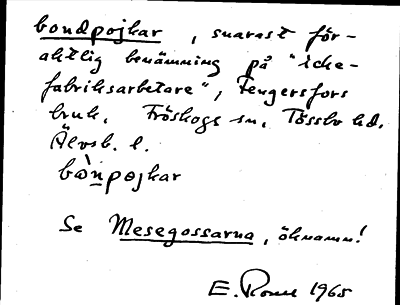 bondpojkar, snarast för-
aktlig benämning på "icke-
fabriksarbetare", Fengersfors
bruk, Fröskogs sn, Tössbo hd.
Älvsb. l.
bòn̠pojkar
Se Mesegossarna, öknamn!
E. 1965